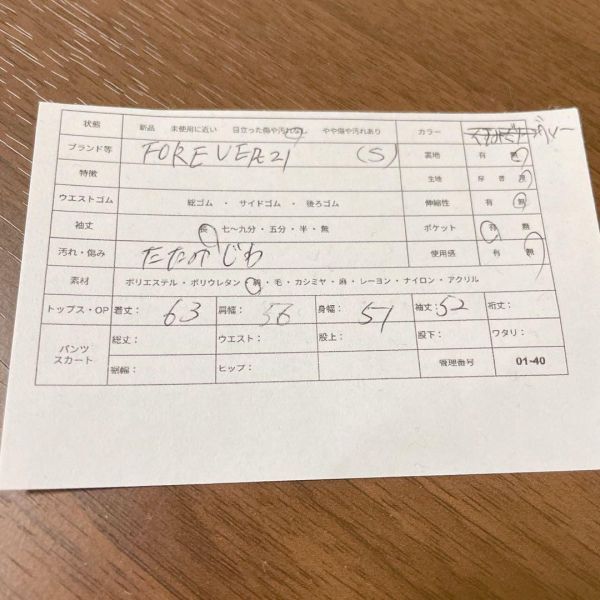 状態 新品 未使用に近い 目立った傷や汚れなし やや傷や汚れあり カラー グレー
ブランド等 FOREVER21 (S) 裏地 有 無
特徴 生地 厚 普 薄
ウエストゴム 総ゴム ・ サイドゴム ・ 後ろゴム 伸縮性 有 無
袖丈 長 七〜九分 ・ 五分 ・ 半 ・ 無 ポケット 有 無
汚れ・傷み たたみじわ 使用感 有 無
素材 ポリエステル ・ ポリウレタン ・ 綿 ・ 毛 ・ カシミヤ ・ 麻 ・ レーヨン ・ ナイロン ・ アクリル
トップス・OP 着丈： 63 肩幅： 56 身幅： 51 袖丈： 52 裄丈：
パンツ
スカート
総丈： ウエスト： 股上： 股下： ワタリ：
裾幅： ヒップ： 管理番号 01-40